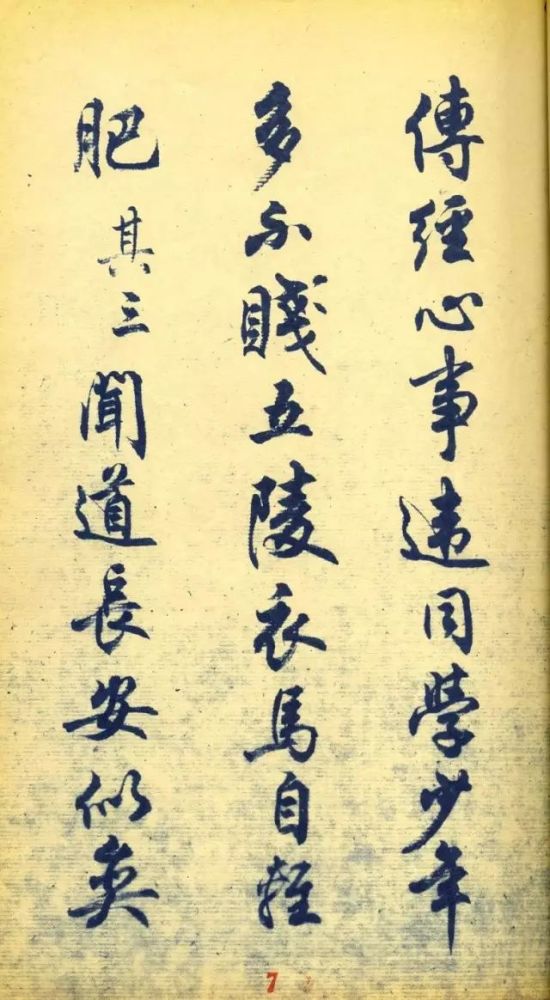 傳經心事違同學少年
多不賤五陵衣馬自輕
肥 其三 聞道長安似奕
7